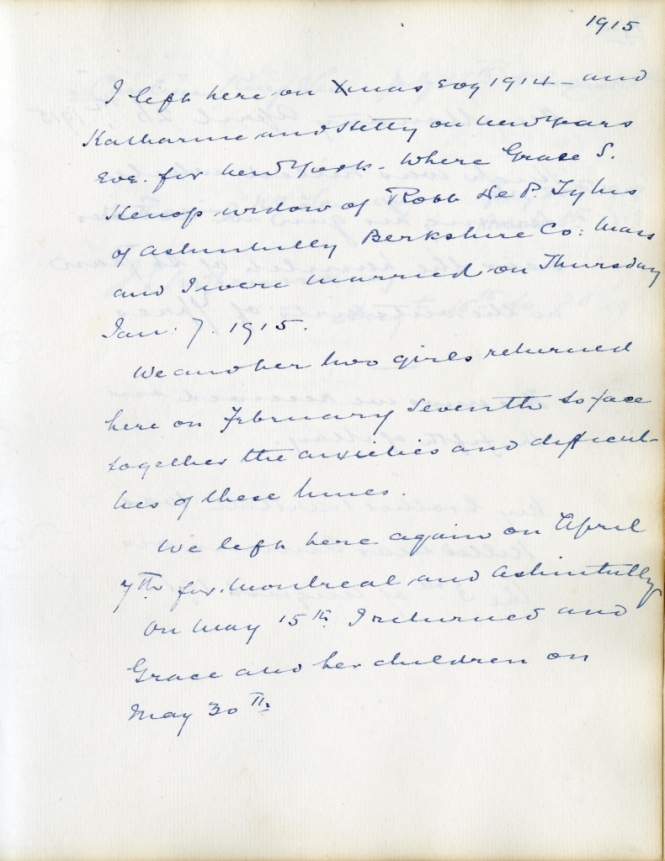 1915
I left here on Xmas Eve 1914 - and
Katharine and Hetty on New Years
Eve. for New York - Where Grace S.
Henop widow of Robb De P. Tytus
of Ashintully Berkshire Co: Mass
and I were married on Thursday
Jan. 7. 1915.
We and her two girls returned
here on February Seventh to face
together the anxieties and difficul-
ties of these times.
We left here again on April
7th for Montreal and Ashintully
On May 15th I returned and
Grace and her children on
May 30th